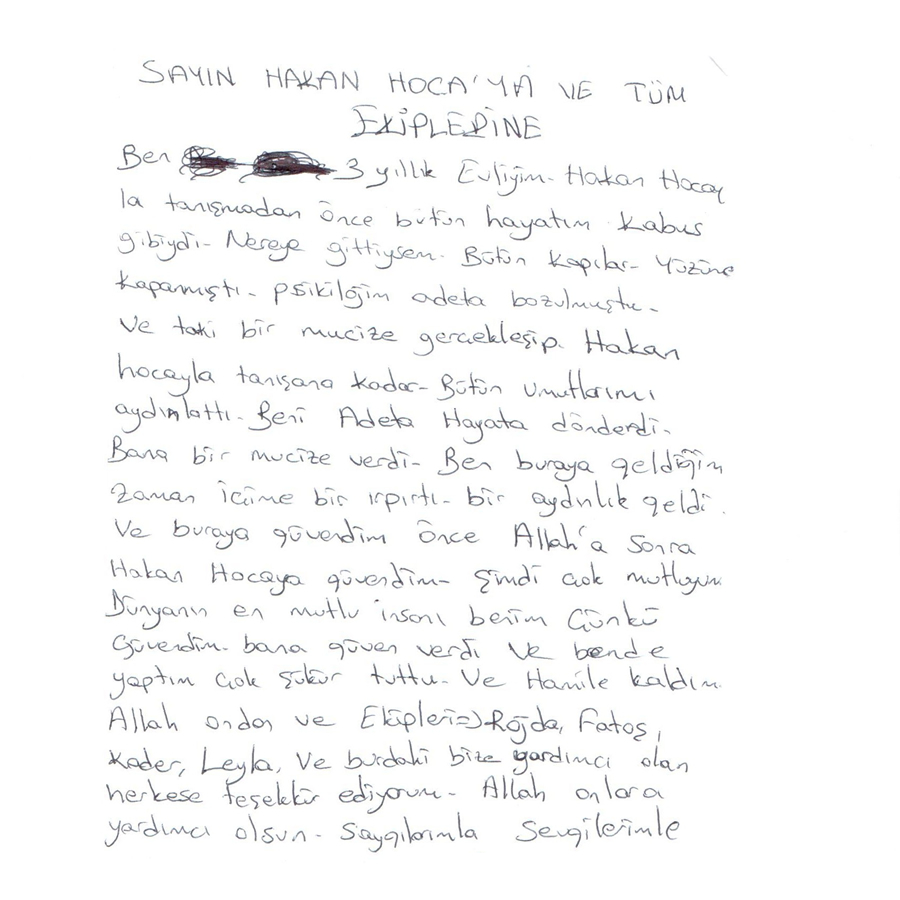 SAYIN HAKAN HOCA'YA VE TÜM
EKİPLERİNE
Ben 3 yıllık Evliyim. Hakan Hocay
la tanışmadan önce bütün hayatım Kabus
gibiydi. Nereye gittiysem. Bütün Kapılar. Yüzüne
kapanmıştı. psikiloğim adeta bozulmuştu.
Ve taki bir mucize gerçekleşip. Hakan
hocayla tanışana kadar. Bütün Umutlarımı
aydınlattı. Beni Adeta Hayata dönderdi.
Bana bir mucize verdi. Ben buraya geldiğim
zaman içime bir ırpırtı. bir aydınlık geldi.
Ve buraya güvendim Önce Allah'a Sonra
Hakan Hocaya güvendim. Şimdi çok mutluyum
Dünyanın en mutlu insanı benim Çünkü
Güvendim. bana güven verdi Ve bende
yaptım çok şükür tuttu. Ve Hamile kaldım.
Allah ondan ve Ekipleri=) Rojda, Fatoş,
Kader, Leyla, Ve burdaki bize yardımcı olan
herkese teşekkür ediyorum. Allah onlara
yardımcı olsun. Saygılarımla Sevgilerimle